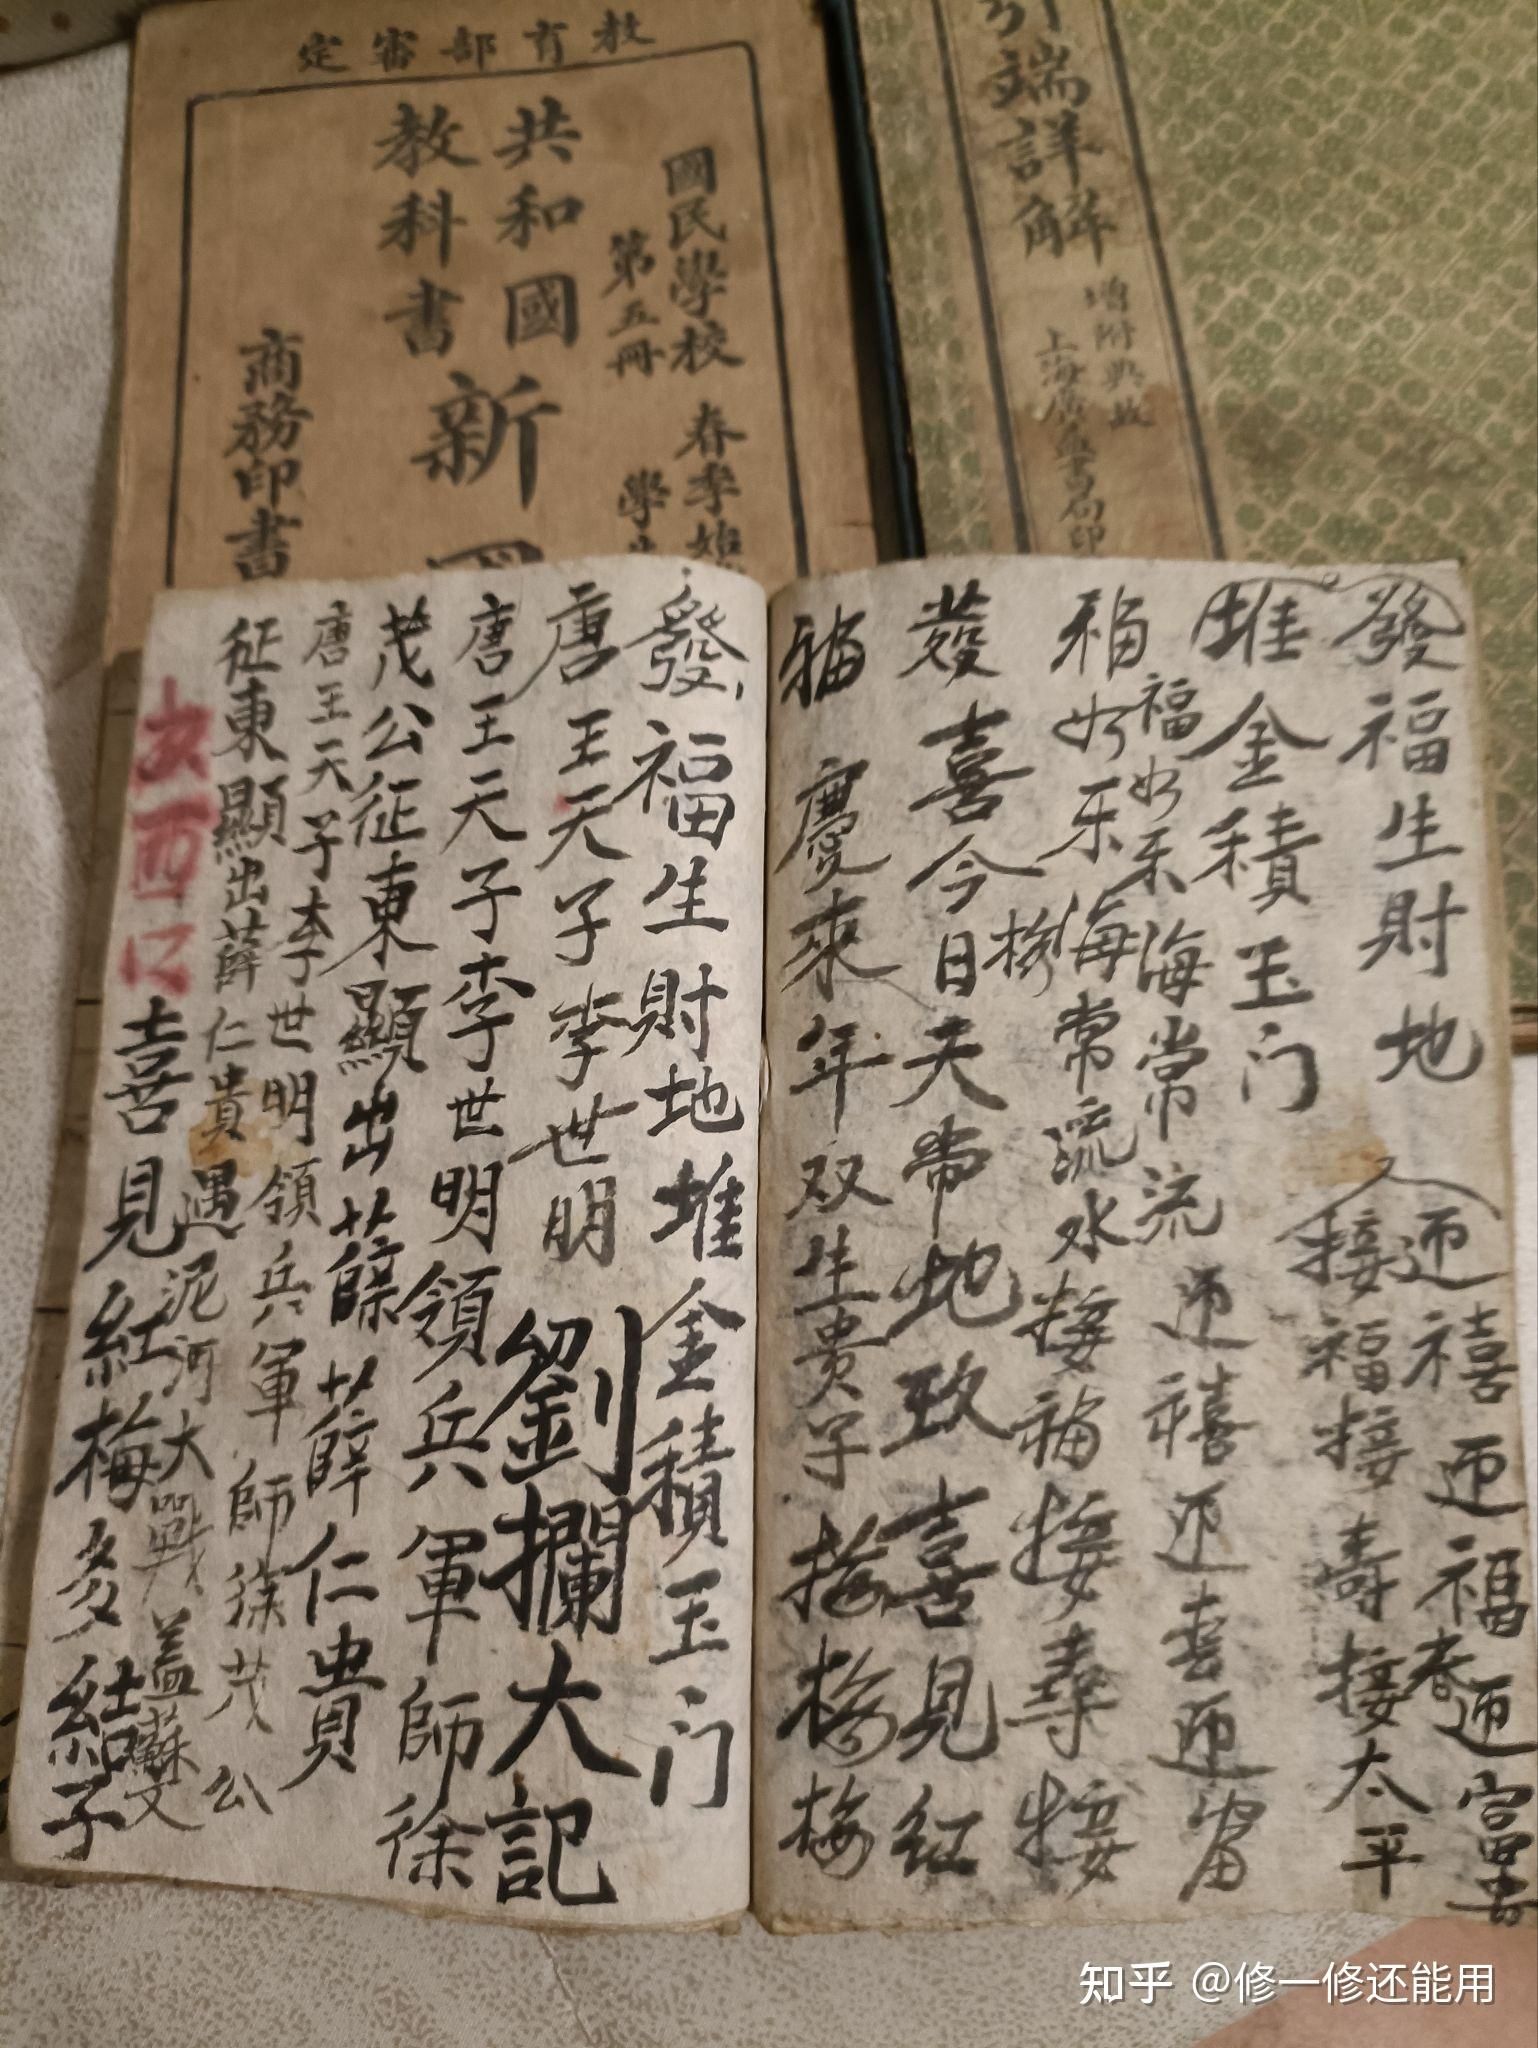 教育部審定
國民學校 春季始
第五冊 學生
共和國
教科書
新國
商務印書
引端詳解
增附典故
上海廣益書局印
發福生財地
堆金積玉门
迊禧迊福迊富
春
人接福接壽接太平
福如东海常流
迊禧迊喜迊富
福如东海常流水
接福接寿接
發喜今日天常地
喜見红
福
慶來年双生贵子
梅梅
發福生財地堆金積玉门
唐王天子李世明
劉攔大記
唐王天子李世明領兵軍師徐
茂公征東顯出薛薛仁貴
唐王天子李世明領兵軍師徐茂公
征東顯出薛仁貴遇泥河大戰蓋蘇文
喜見紅梅多結子
知乎 @修一修还能用